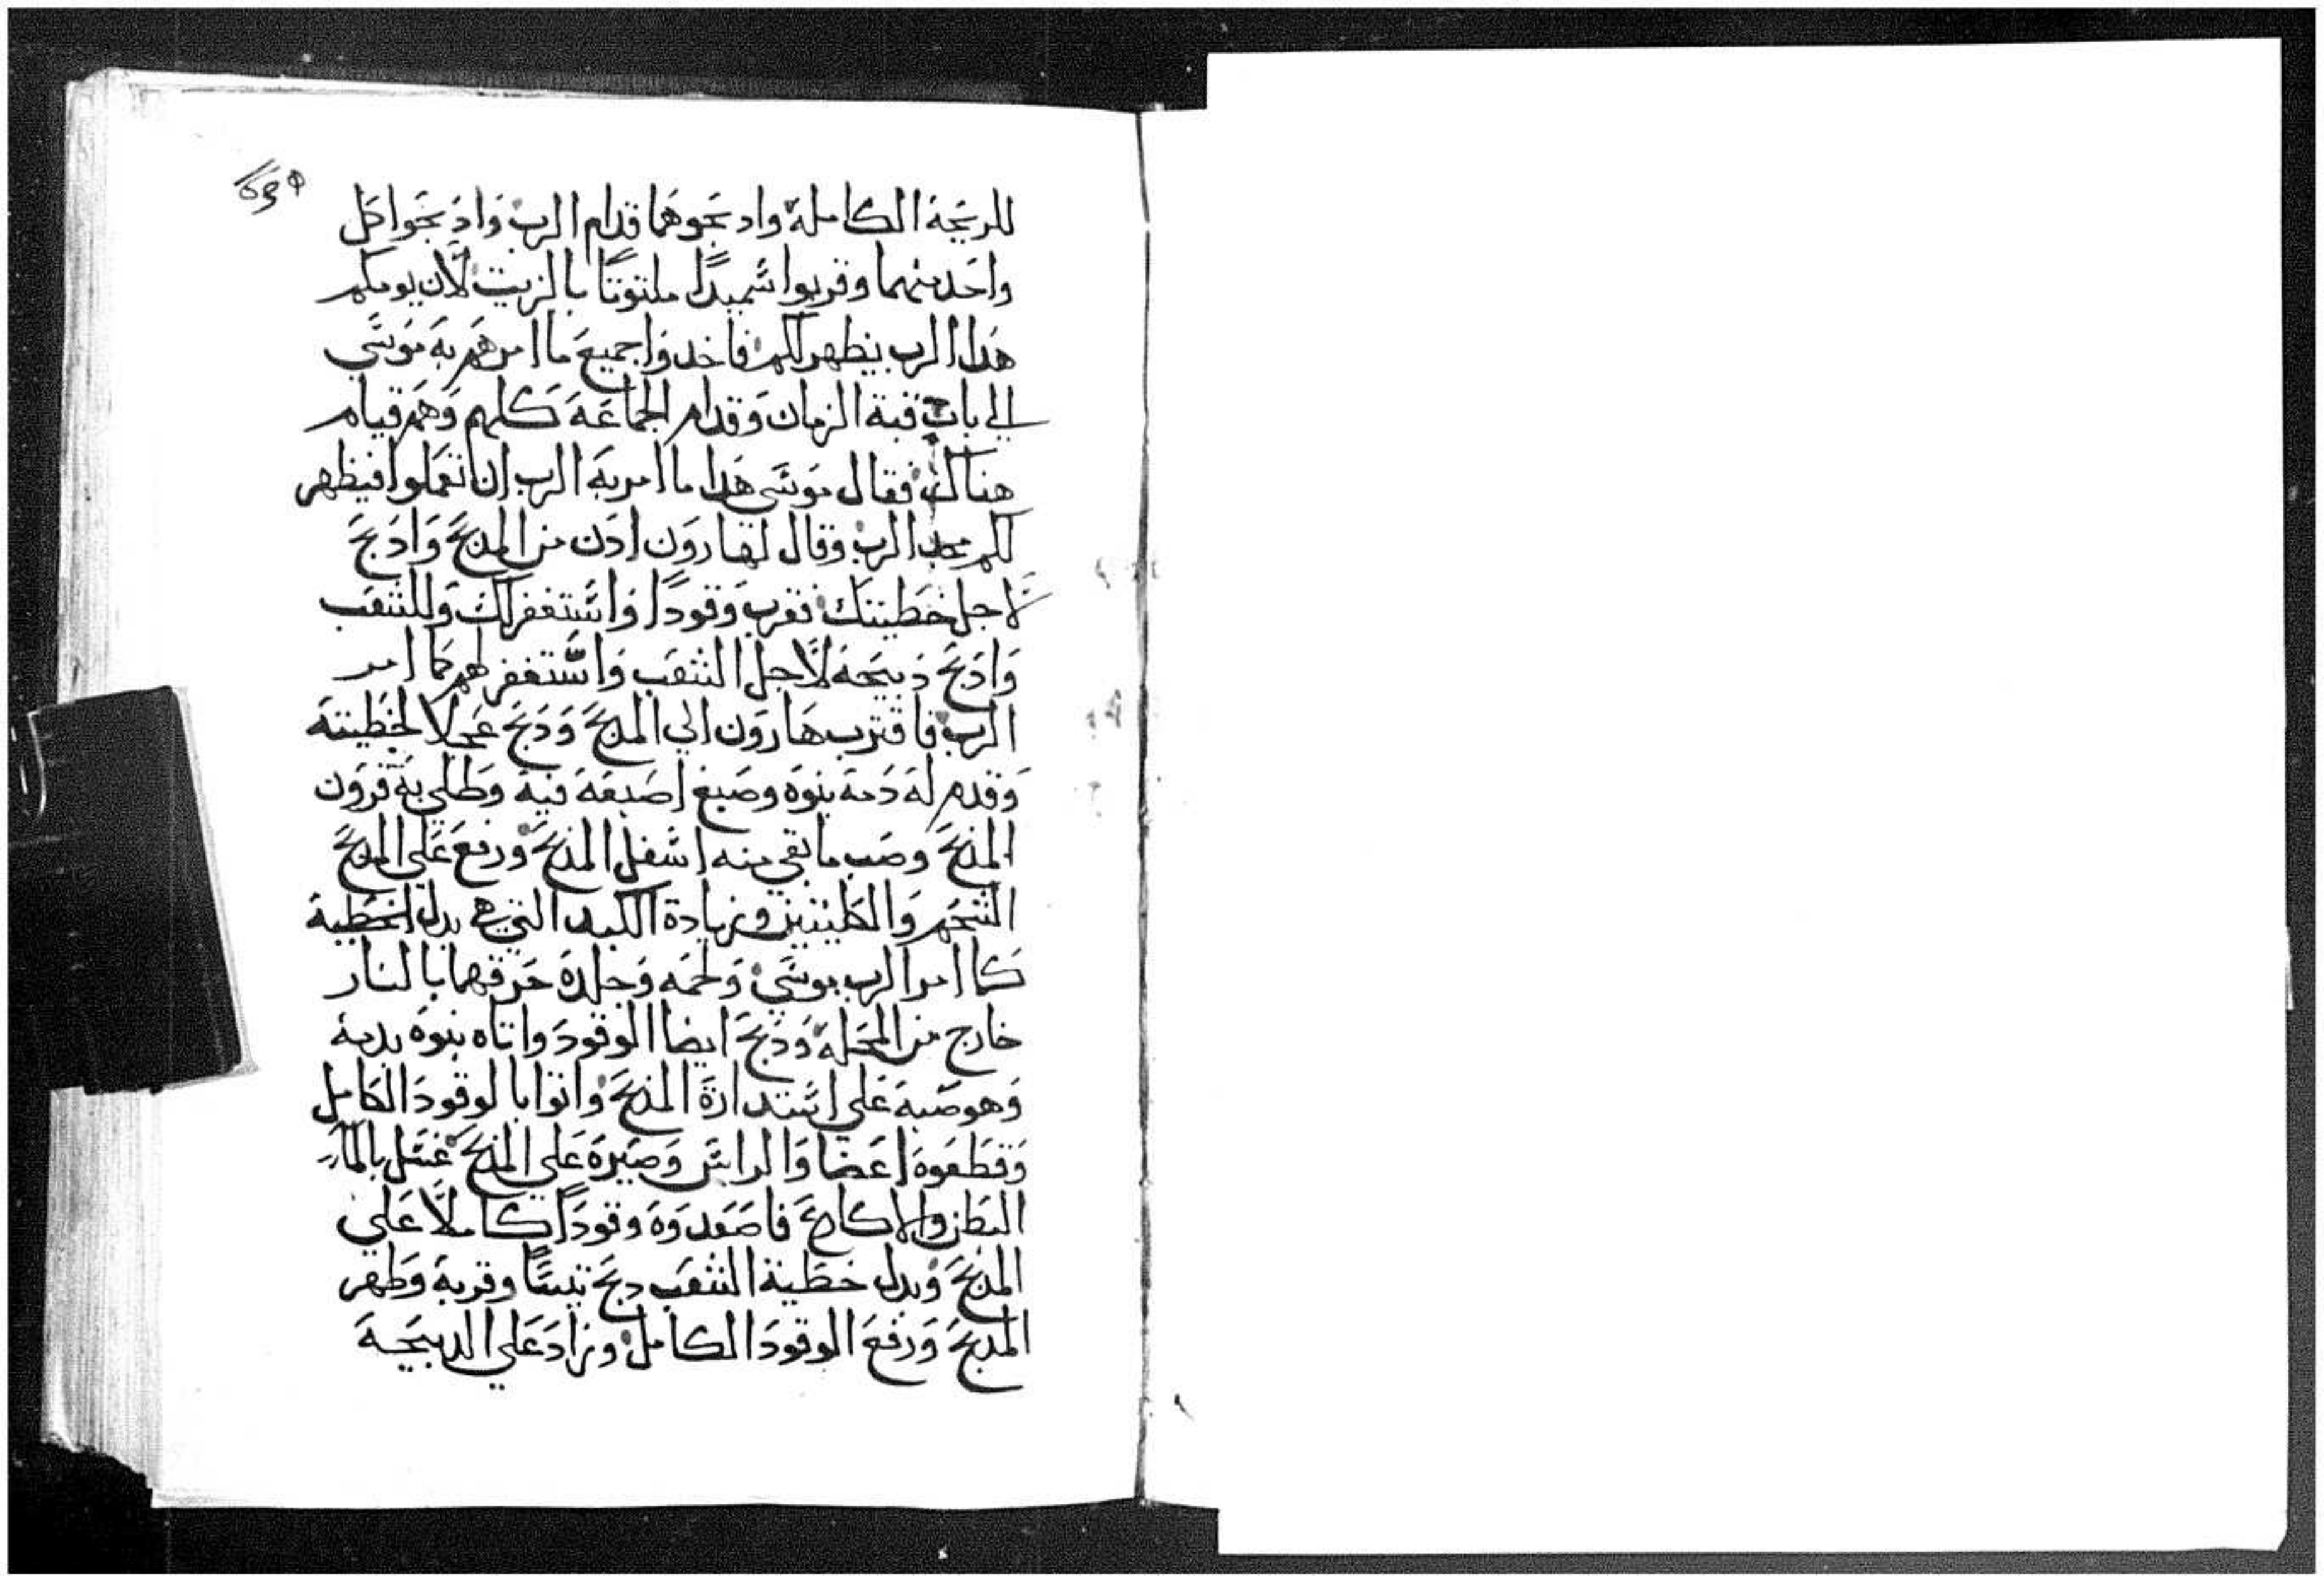 للدبيحة الكاملة وادبحوهما قدام الرب وادبحوا كل
واحد منهما وقربوا سميدًا ملتوتًا بالزيت لان يومكم
هدا الرب ينظهر لكم فاخدوا جميع ما امرهم به موسي
الي باب قبة الزمان وقدام الجماعة كلهم وهم قيام
هناك فقال موسي هدا ما امر به الرب ان تعملوا فيظهر
لكم مجد الرب وقال لهارون ادن من المدبح وادبح
لاجل خطيتك تقرب وقودًا واستغفر لك وللشعب
وادبح دبيحة لاجل الشعب واستغفر لهم كما امر
الرب فاقترب هارون الي المدبح ودبح عجلا لخطيته
وقدم له دمه بنوه وصبغ اصبعه فيه وطلي به قرون
المذبح وصب ما بقي منه اسفل المذبح ورفع علي المدبح
الشحم والكليتين وزيادة الكبد التي هي بدل الخطية
كما امر الرب موسي ولحمه وجلده حرقهما بالنار
خارج من المحلة ودبح ايضا الوقود واتاه بنوه بدمه
وهو صبه علي استدارة المذبح واتوا بالوقود الكامل
وقطعوه اعضا والراس وصيره علي المذبح غسل بالماء
البطن والاكارع فاصعدوه وقودًا كاملًا علي
المذبح وبدل خطية الشعب دبح تيسًا وقربه وطهر
المدبح ورفع الوقود الكامل وزاد علي الدبيحة